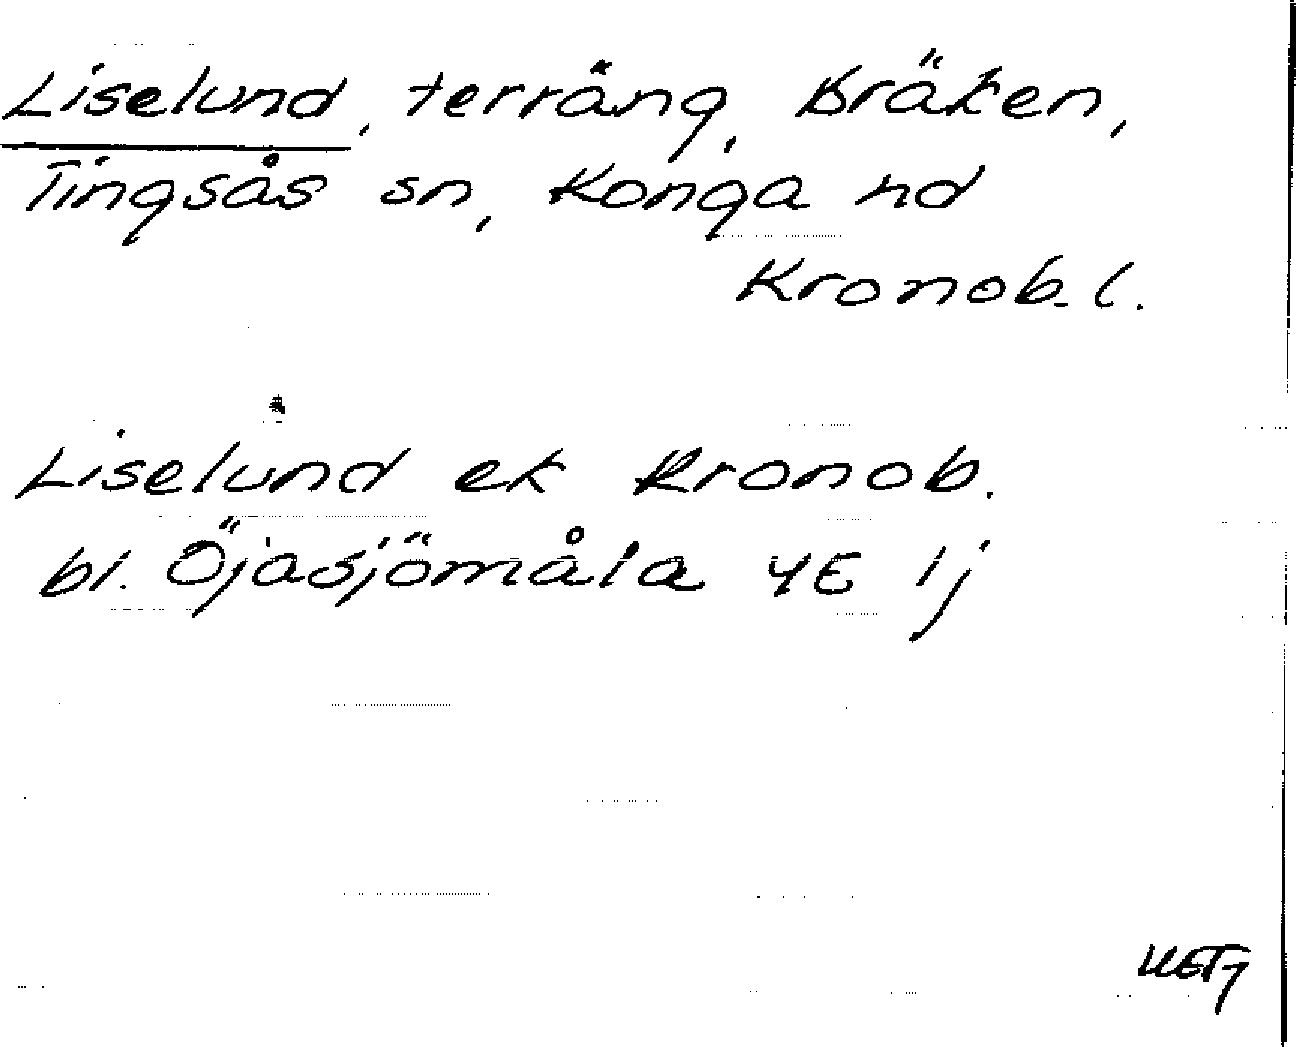 Liselund, terräng, Bräken,
Tingsås sn, Konga hd
Kronob. l.
Liselund ek Kronob.
bl. Öjasjömåla 4E 1j